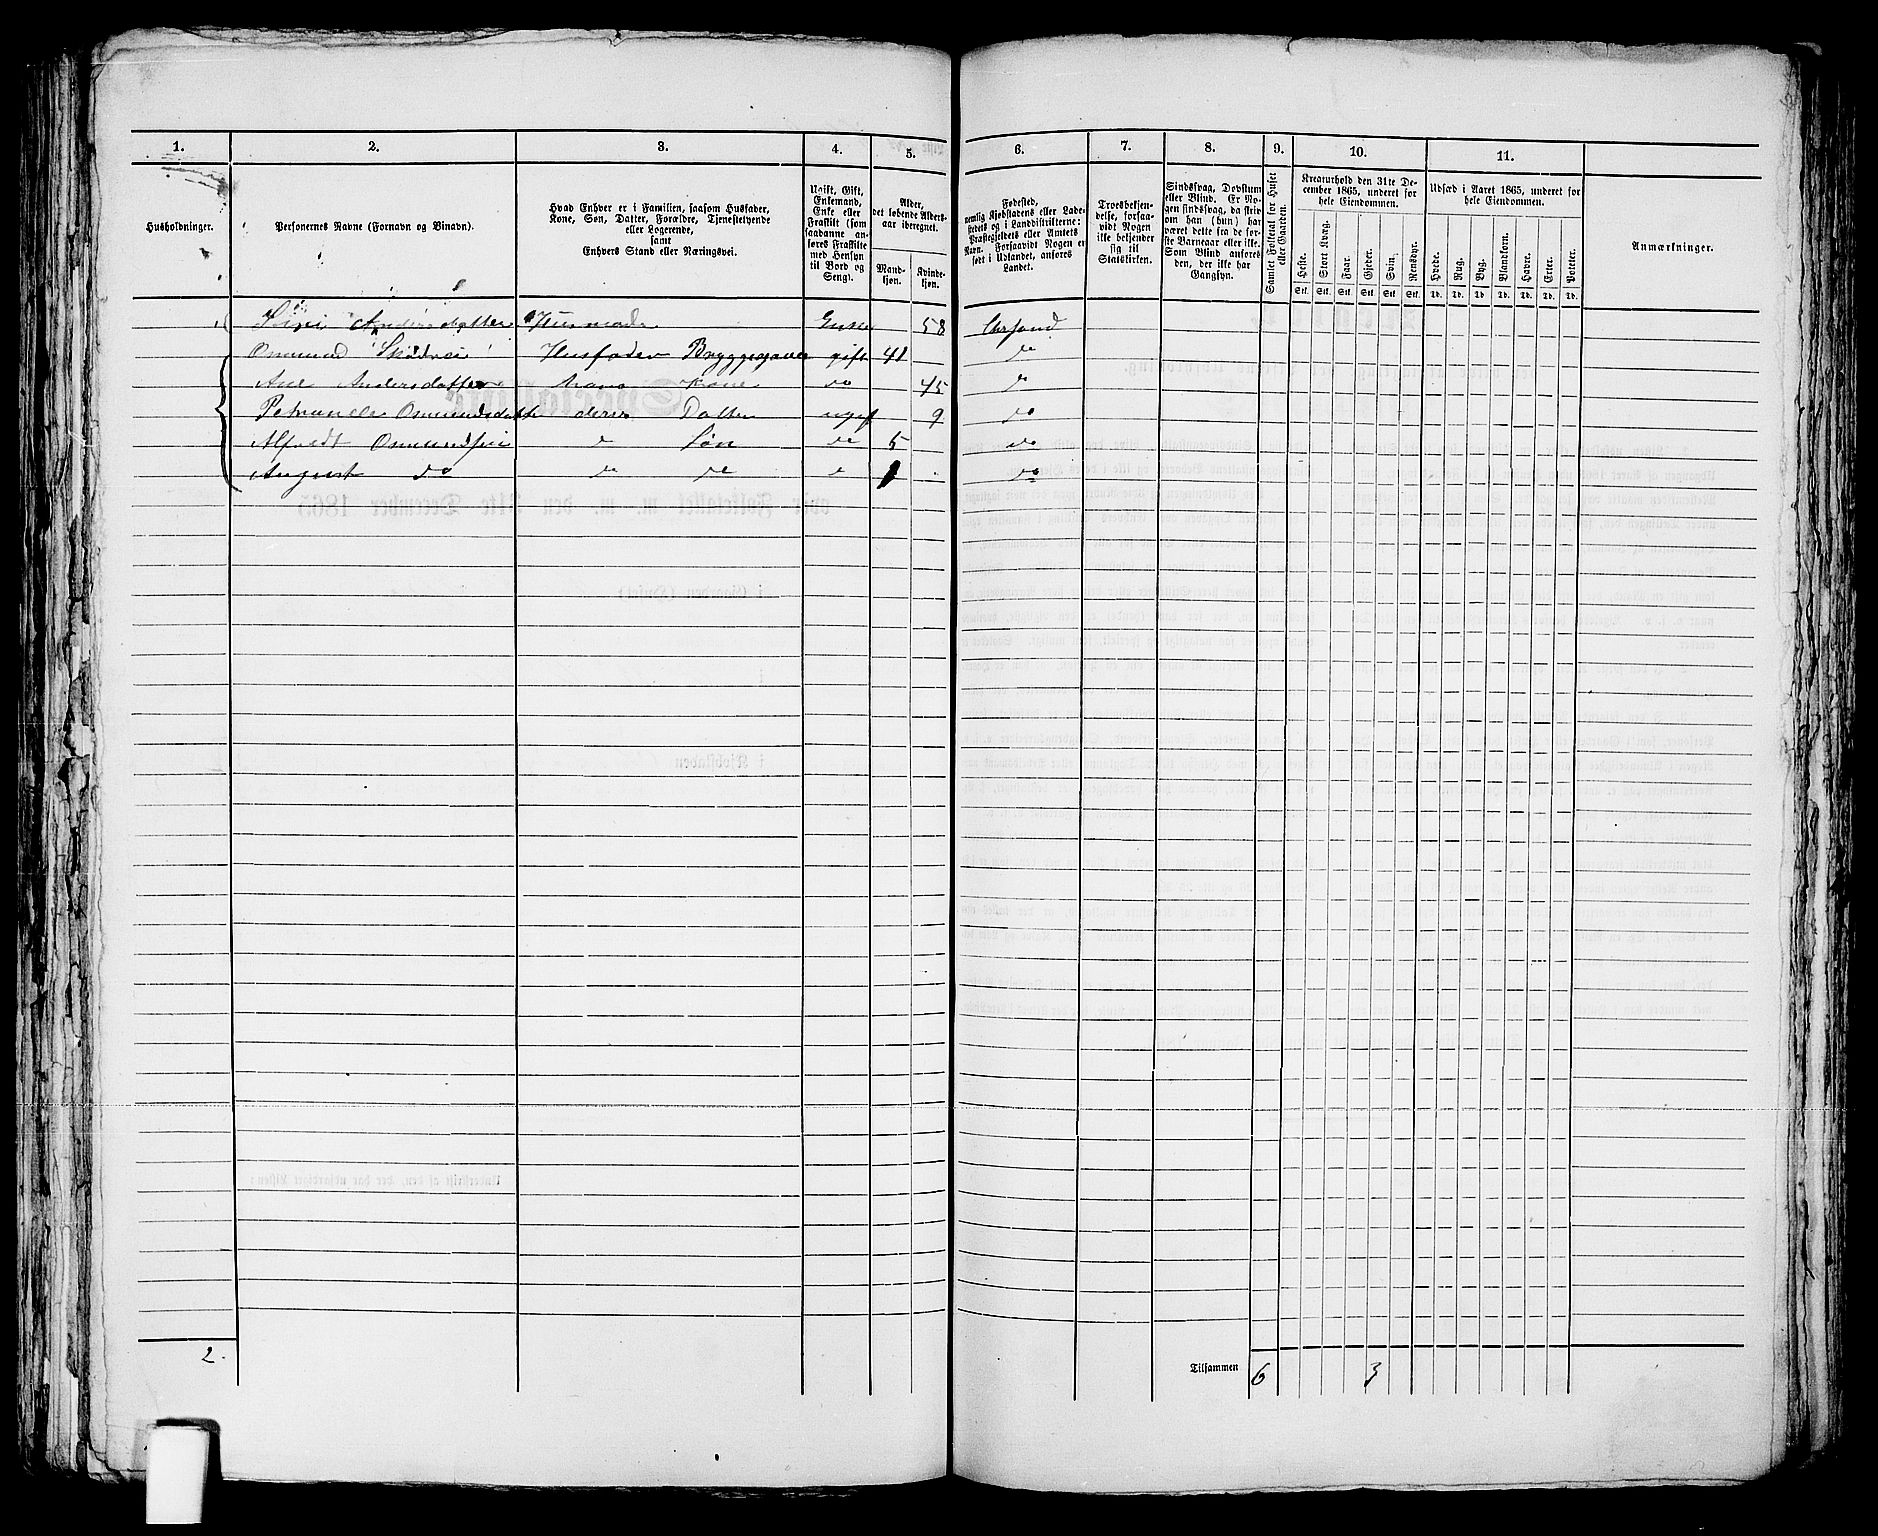 1. 2. 3. 4. 5. 6. 7. 8. 9. 10. 11.
Husholdninger.
Personernes Navne (Fornavn og Binavn).
Hvad Enhver er i Familien, saasom Husfader,
Kone, Søn, Datter, Forældre, Tjenestetyende
eller Logerende,
samt
Enhvers Stand eller Næringsvei.
Ugift, Gift,
Enkemand,
Enke eller
Fraskilt (som
saadanne an-
føres Fraskilte
med Hensyn
til Bord og
Seng).
Alder,
det løbende Alders-
aar iberegnet.
Mand-
kjøn.
Kvinde-
kjøn.
Fødested,
nemlig Kjøbstadens eller Lade-
stedets og i Landdistrikterne:
Præstegjeldets eller Amtets
Navn. Forsaavidt Nogen er
født i Udlandet, anføres
Landet.
Troesbekjen-
delse, forsaa-
vidt Nogen
ikke bekjender
sig til
Statskirken.
Sindssvag, Døvstum
eller Blind. Er No-
gen sindssvag, da skriv
om han (hun) har
været dette fra de før-
ste Barneaar eller ikke.
Som Blind anføres
den, der ikke har
Gangsyn.
Samlet Folketal for Huset
eller Gaarden.
Kreaturhold den 31te De-
cember 1865, underet for
hele Eiendommen.
Heste. Stort Kvæg. Faar. Gjeder. Svin. Rensdyr.
Stk. Stk. Stk. Stk. Stk. Stk.
Udsæd i Aaret 1865, underet for
hele Eiendommen.
Hvede. Rug. Byg. Blandkorn. Havre. Erter. Poteter.
Td. Td. Td. Td. Td. Td. Td.
Anmærkninger.
Andersdatter Husmoder Enke 58 Chrsand
Osmund Husfader gift 41 do
Ane Andersdatter hans Kone do 45 do
Osmundsdatter deres Datter ugift 9 do
Osmundsen do Søn do 5 do
August do do do do 1 do
2. Tilsammen 6 3